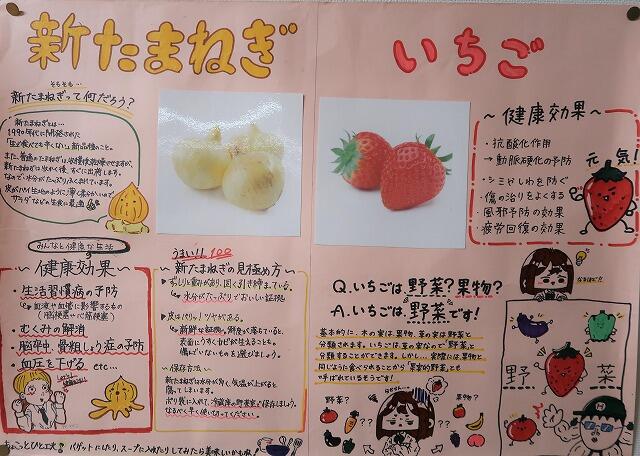 新たまねぎ
そもそも…
新たまねぎって何だろう?
新たまねぎとは…
1990年代に開発された
「生で食べても辛くない」新品種のこと。
また、普通のたまねぎは収穫後乾燥させますが、
新たまねぎは収かく後、すぐに出荷します。
なので水分がたっぷりふくまれています。
皮がパイ生地のように薄く柔らかいので
サラダなどの生食に最適
みんなと健康な生活
~健康効果~
・生活習慣病の予防
↳血液や血管に影響するもの
(脳梗塞・心筋梗塞)
・むくみの解消
・脳卒中、骨粗しょう症の予防
・血圧を下げる etc…
うまい!! 100
~新たまねぎの見極め方~
▶ずっしり重みがあり、固く引き締まっている。
↳水分がたっぷりでおいしい証拠
▶皮はパリッ!ツヤがある。
↳新鮮な証拠。鮮度が落ちていると、
表面にうすくカビが生えることも。
傷んでいないものを選びましょう。
~保存方法~
新たまねぎは水分が多く、気温が上がると
腐ってしまいます。
ポリ袋に入れて、冷蔵庫の野菜室で保存しましょう。
なるべく早く使い切ってください。
ちょこっとひと工夫? バゲットにしたり、スープに入れたりしてみたら美味しいかもね!
いちご
~健康効果~
・抗酸化作用
→動脈硬化の予防
・シミやしわを防ぐ
・傷の治りをよくする
・風邪予防の効果
・疲労回復の効果
元気!
Q.いちごは、野菜?果物?
A.いちごは、野菜です!
なるほど!!
基本的に、木の実は、果物、草の実は野菜と
分類されます。いちごは草の実なので野菜と
分類することができます。しかし…、実際には、果物と
同じように食べられることから"果実的野菜"とも
呼ばれているそうです!
野菜?
果物?
??
??
野
菜